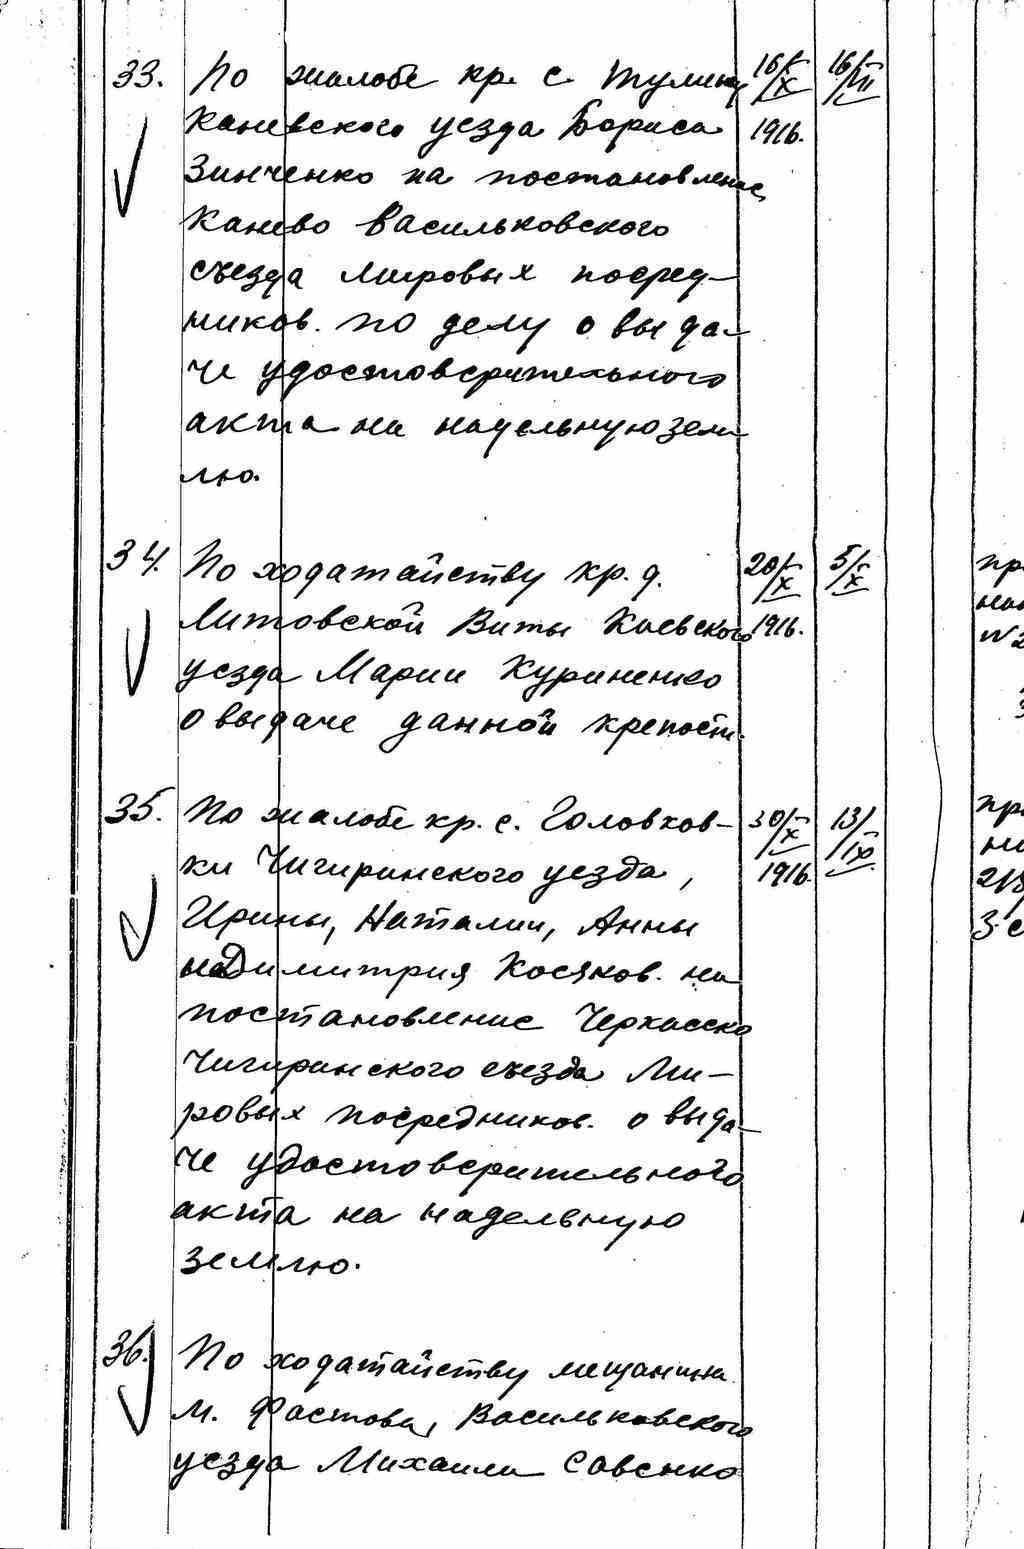 33. По жалобе кр. с. Тулинц 16/X 16/VIII
Каневского уезда Бориса 1916.
Зинченко на постановление
Канево Васильковского
съезда мировых посред-
ников. по делу о выда-
че удостоверительного
акта на надельную зем
лю.
34. По ходатайству кр. д. 20/X 5/X
Литовской Виты Киевского 1916.
уезда Марии Куриненко
о выдаче данной крепости.
35. По жалобе кр. с. Головков- 30/X 13/IX
ки Чигиринского уезда, 1916.
Ирины, Наталии, Анны
Димитрия Косяков. на
постановление Черкасско
Чигиринского съезда Ми-
ровых посредников. о выда-
че удостоверительного
акта на надельную
землю.
36. По ходатайству мещанина
м. Фастова, Васильковского
уезда Михаила Савенко